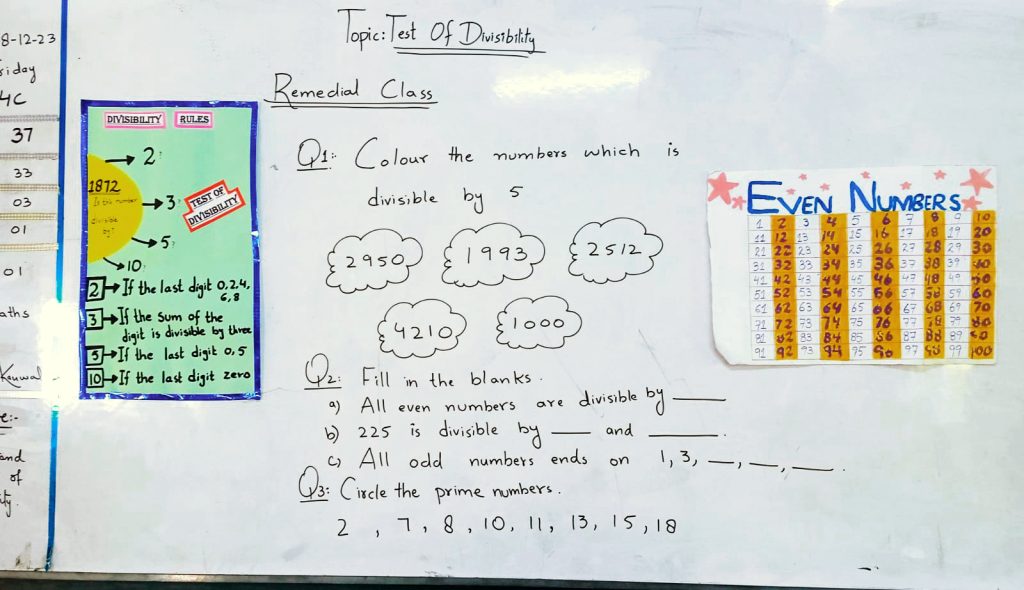 8-12-23
4C
37
33
03
01
01
Topic: Test Of Divisibility
Remedial Class
DIVISIBILITY RULES
→ 2?
1872
Is the number
divisible
by?
→ 3?
TEST OF
DIVISIBILITY
→ 5?
→ 10?
2 → If the last digit 0,2,4,
6,8
3 → If the sum of the
digit is divisible by three
5 → If the last digit 0,5
10 → If the last digit zero
Q1:- Colour the numbers which is
divisible by 5
2950 1993 2512
4210 1000
Q2: Fill in the blanks.
a) All even numbers are divisible by ___
b) 225 is divisible by ___ and ___.
c) All odd numbers ends on 1, 3, __, __, __.
Q3: Circle the prime numbers.
2, 7, 8, 10, 11, 13, 15, 18
EVEN NUMBERS
1 2 3 4 5 6 7 8 9 10
11 12 13 14 15 16 17 18 19 20
21 22 23 24 25 26 27 28 29 30
31 32 33 34 35 36 37 38 39 40
41 42 43 44 45 46 47 48 49 50
51 52 53 54 55 56 57 58 59 60
61 62 63 64 65 66 67 68 69 70
71 72 73 74 75 76 77 78 79 80
81 82 83 84 85 86 87 88 89 90
91 92 93 94 95 96 97 98 99 100